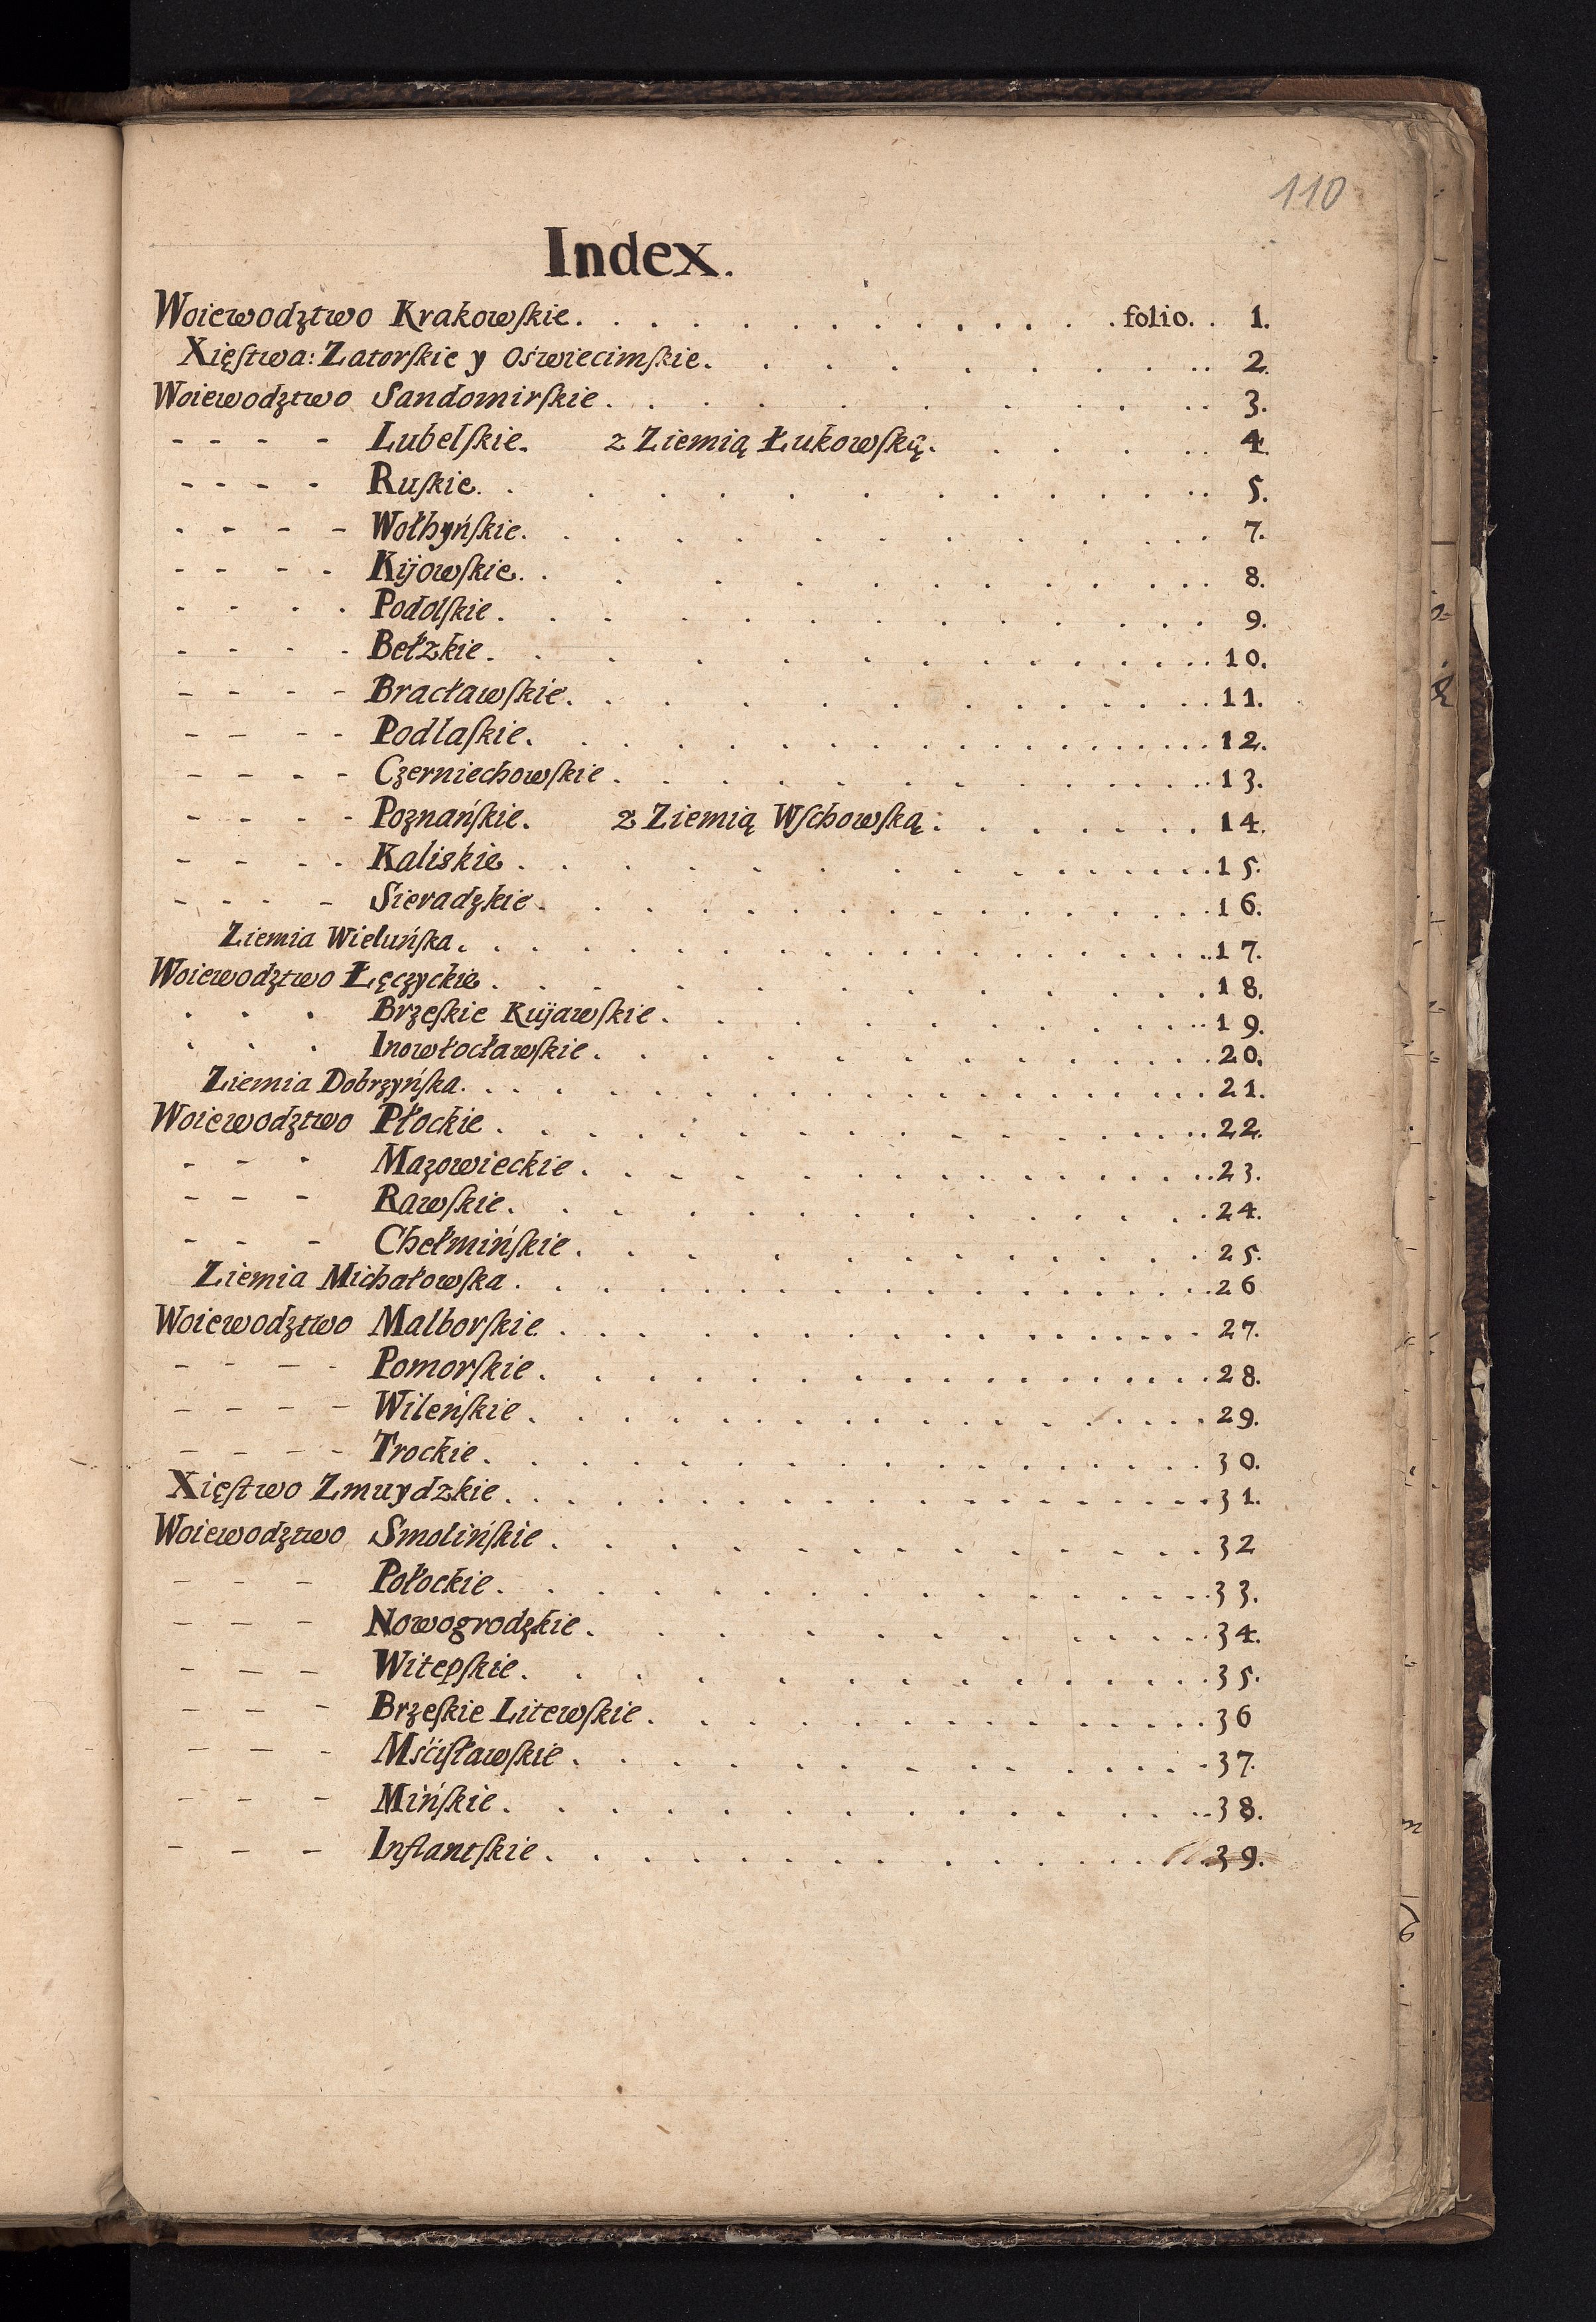 110
Index.
Woiewodztwo Krakowſkie. . . . . . . . . . . . . folio. . 1.
Xięſtwa: Zatorſkie y Oświecimſkie. . . . . . . . . . 2.
Woiewodztwo Sandomirſkie. . . . . . . . . . 3.
- - - - Lubelſkie. z Ziemią Łukowſką. . . . . . 4.
- - - - Ruſkie. . . . . . . . . . . . . 5.
- - - - Wołhyńſkie. . . . . . . . . . . . 7.
- - - - Kijowſkie. . . . . . . . . . . . 8.
- - - - Podolſkie. . . . . . . . . . . . 9.
- - - - Bełzkie. . . . . . . . . . . . . 10.
- - - - Bracławſkie. . . . . . . . . . . . 11.
- - - - Podlaſkie. . . . . . . . . . . . . 12.
- - - - Czerniechowſkie. . . . . . . . . . . 13.
- - - - Poznańſkie. z Ziemią Wſchowſką. . . . . . . 14.
- - - - Kaliskie. . . . . . . . . . . . . 15.
- - - - Sieradzkie. . . . . . . . . . . . . 16.
Ziemia Wieluńſka. . . . . . . . . . . . . . 17.
Woiewodztwo Łęczyckie. . . . . . . . . . . . 18.
. . . Brzeſkie Kujawſkie. . . . . . . . . . 19.
. . . Inowłocławſkie. . . . . . . . . . . 20.
Ziemia Dobrzyńſka. . . . . . . . . . . . . . 21.
Woiewodztwo Płockie. . . . . . . . . . . . . 22.
- - - Mazowieckie. . . . . . . . . . . . 23.
- - - Rawſkie. . . . . . . . . . . . . 24.
- - - Chełmińſkie. . . . . . . . . . . . 25.
Ziemia Michałowſka. . . . . . . . . . . . . 26
Woiewodztwo Malborſkie. . . . . . . . . . . . 27.
- - - - Pomorſkie. . . . . . . . . . . . . 28.
- - - - Wileńſkie. . . . . . . . . . . . . 29.
- - - - Trockie. . . . . . . . . . . . . . 30.
Xięſtwo Zmuydzkie. . . . . . . . . . . . . . 31.
Woiewodztwo Smolińſkie. . . . . . . . . . . . 32
- - - Połockie. . . . . . . . . . . . . 33.
- - - Nowogrodzkie. . . . . . . . . . . 34.
- - - Witepſkie. . . . . . . . . . . . . 35.
- - - Brzeſkie Litewſkie. . . . . . . . . . 36
- - - Mśćiſławſkie. . . . . . . . . . . . 37.
- - - Mińſkie. . . . . . . . . . . . . 38.
- - - Inflantſkie. . . . . . . . . . . . 39.